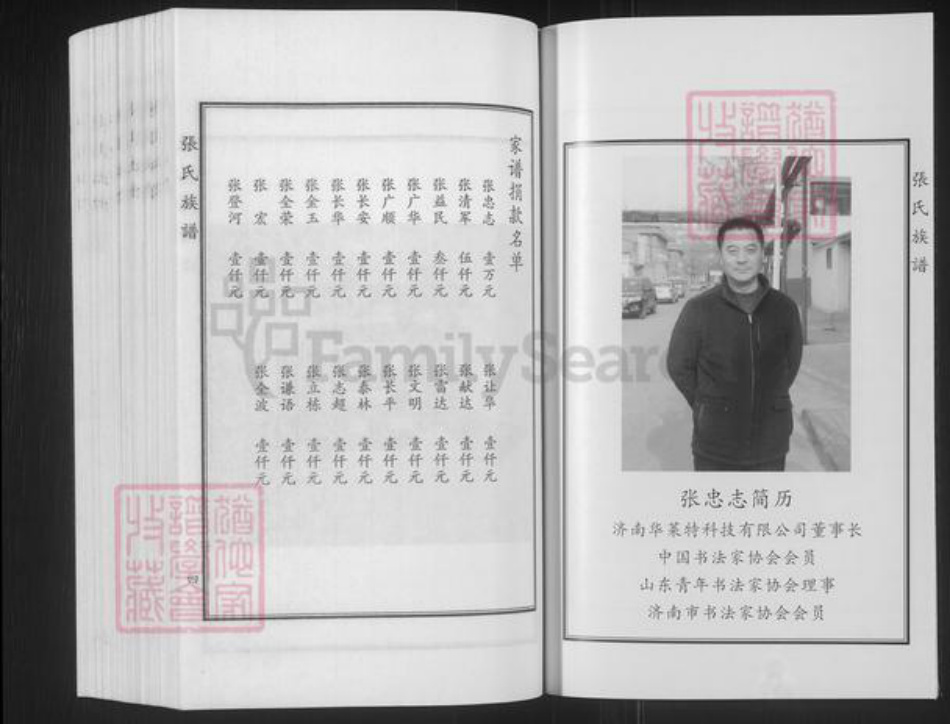 張氏族譜
家谱捐款名单
张忠志 壹万元
张清军 伍仟元
张益民 叁仟元
张广华 壹仟元
张广顺 壹仟元
张长安 壹仟元
张长华 壹仟元
张金玉 壹仟元
张全荣 壹仟元
张宏 壹仟元
张登河 壹仟元
张让华 壹仟元
张献达 壹仟元
张雷达 壹仟元
张文明 壹仟元
张长平 壹仟元
张泰林 壹仟元
张志超 壹仟元
张立栋 壹仟元
张谦语 壹仟元
张全波 壹仟元
四
FamilySearch
張氏族譜
张忠志简历
济南华莱特科技有限公司董事长
中国书法家协会会员
山东青年书法家协会理事
济南市书法家协会会员